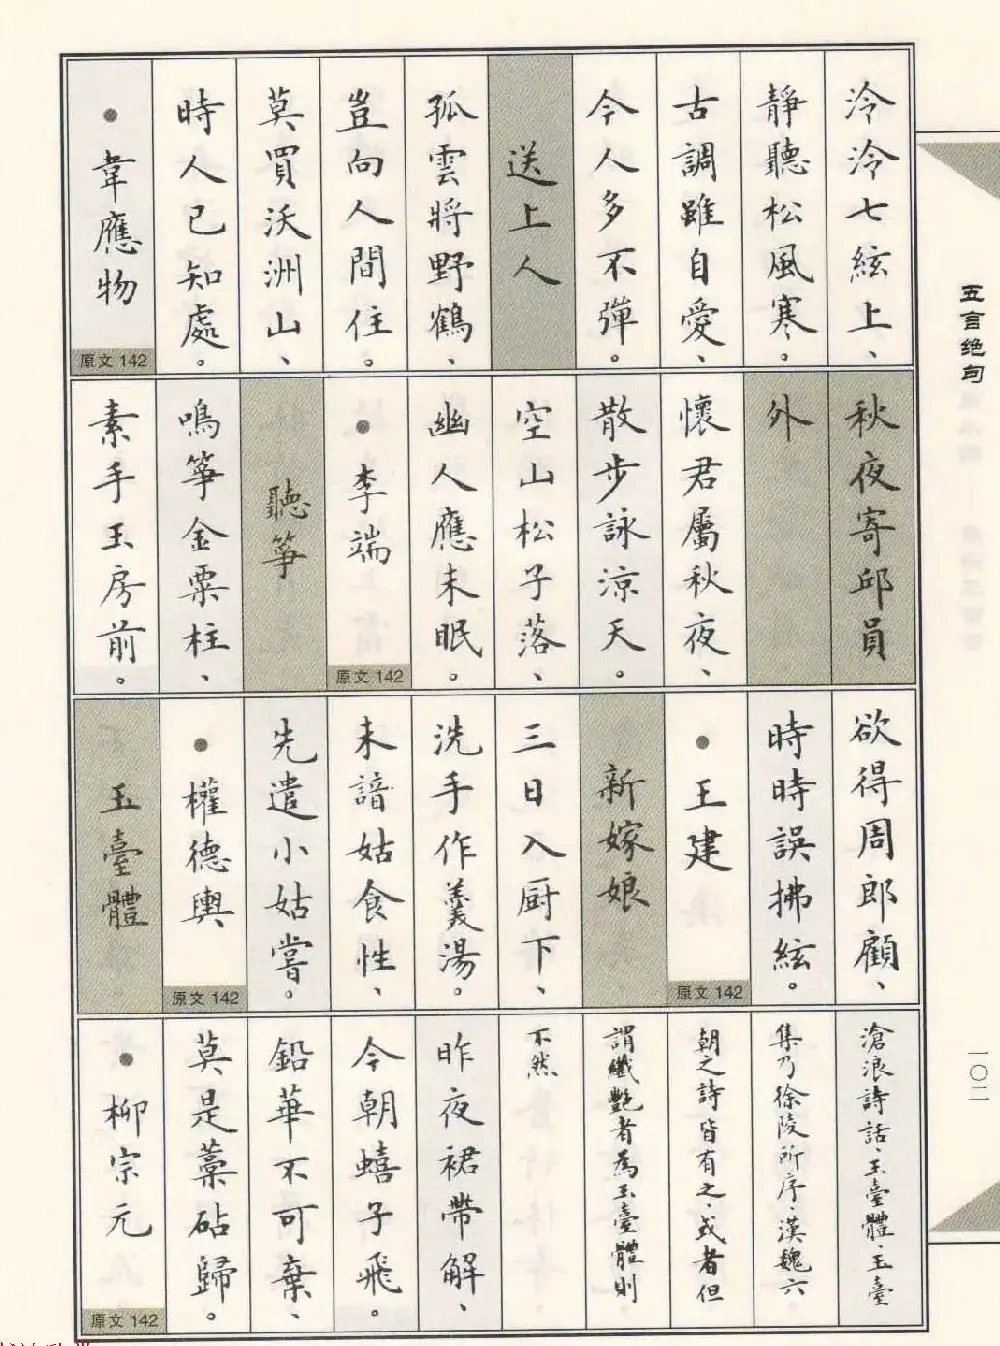 泠泠七絃上、
靜聽松風寒。
古調雖自愛、
今人多不彈。
送上人
孤雲將野鶴、
豈向人間住。
莫買沃洲山、
時人已知處。
●韋應物
原文 142
秋夜寄邱員
外
懷君屬秋夜、
散步詠涼天。
空山松子落、
幽人應未眠。
●李端
原文 142
聽箏
鳴箏金粟柱、
素手玉房前。
欲得周郎顧、
時時誤拂絃。
●王建
原文 142
新嫁娘
三日入厨下、
洗手作羹湯。
未諳姑食性、
先遣小姑嘗。
●權德輿
原文 142
玉臺體
滄浪詩話、玉臺體、玉臺
集乃徐陵所序、漢魏六
朝之詩皆有之、或者但
謂纖艷者為玉臺體則
不然
昨夜裙帶解、
今朝蟢子飛。
鉛華不可棄、
莫是藁砧歸。
●柳宗元
原文 142
五言绝句
一〇二